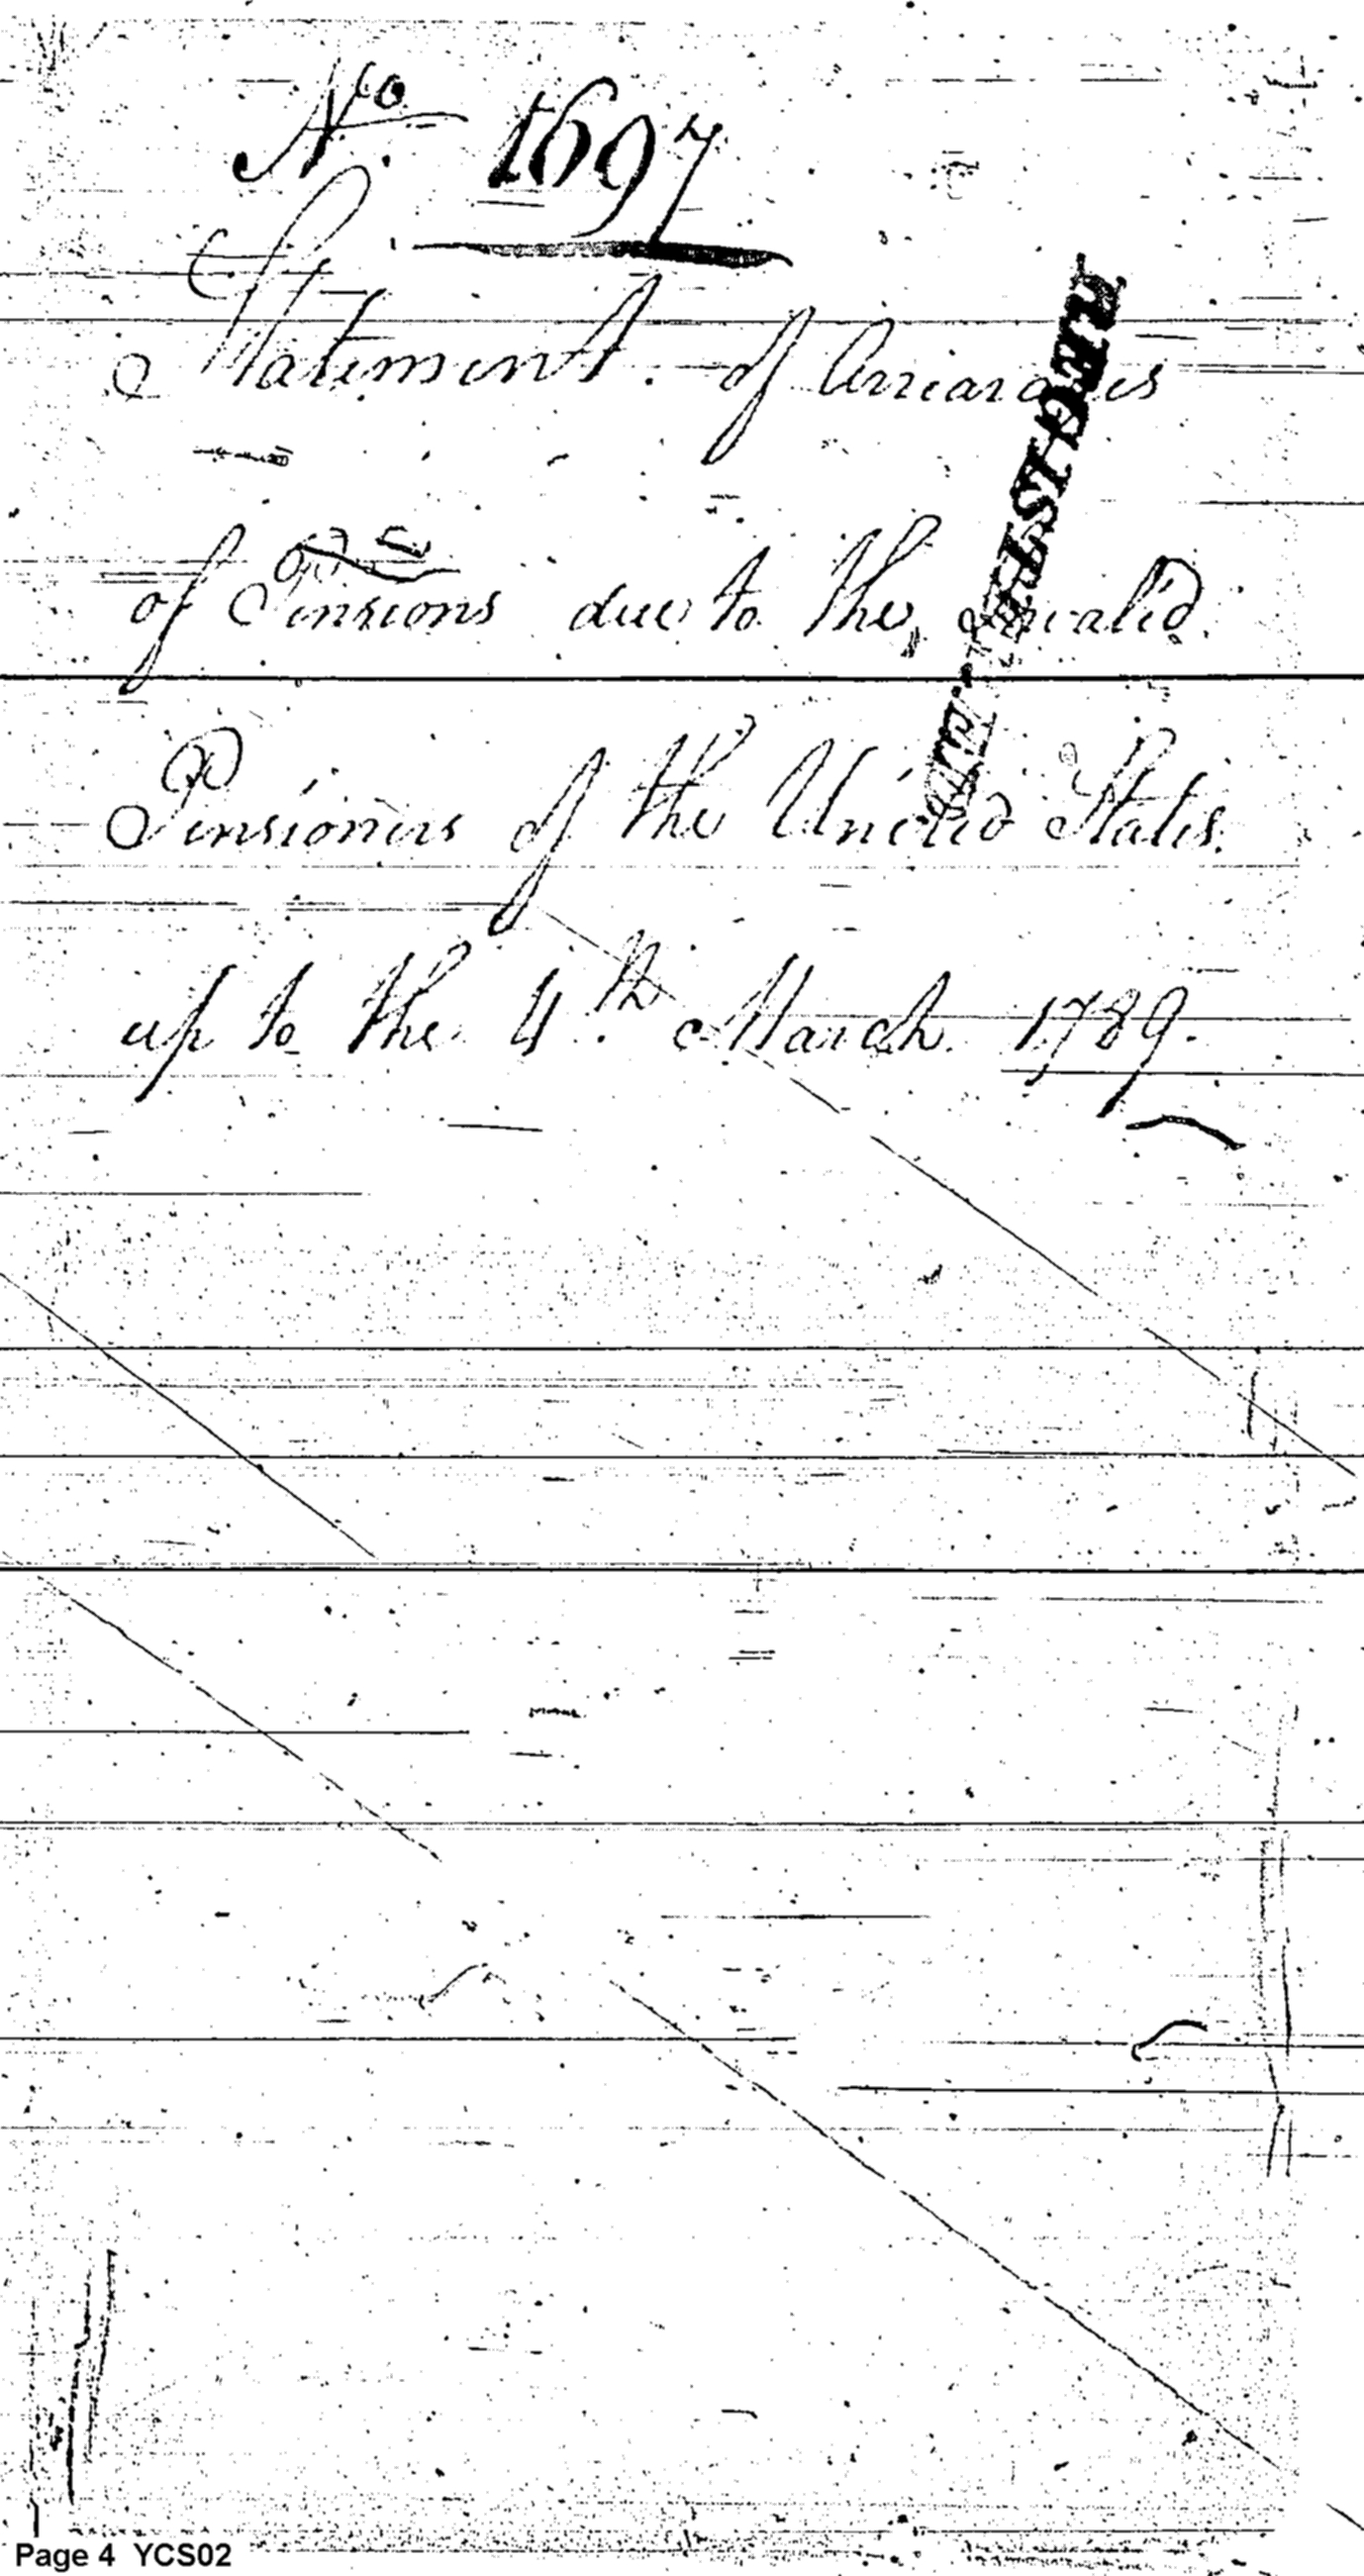 No. 1697
Statement of Arrearages
of Pensions due to the Invalid
Pensioners of the United States.
up to the 4.th March 1789.
REGISTER
Page 4 YCS02